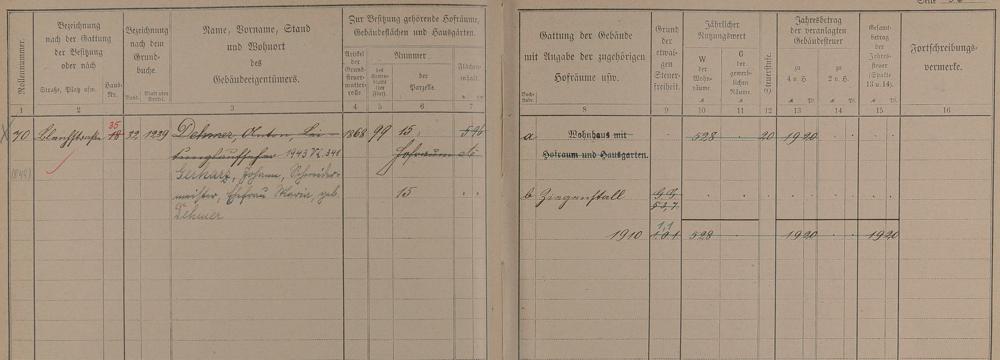 Rollennummer.
Bezeichnung
nach der Gattung
der Besitzung
oder nach
Straße, Platz usw.
Haus-
Nr.
Bezeichnung
nach dem
Grund-
buche.
Band.
Name, Vorname, Stand
und Wohnort
des
Gebäudeeigentümers.
Zur Besitzung gehörende Hofräume,
Gebäudeflächen und Hausgärten.
Artikel
der
Grund-
steuer-
mutter-
rolle.
Nummer
des
der
Parzelle.
Flächen-
inhalt.
1 2 3 4 5 6 7
70 35 18 32 1239 Dehmer, Anton, 1868 99 15 5 96
1943
Hofraum
Gerharz, Johann, Schreiner-
meister, Ehefrau Maria, geb. 15
Dehmer
Seite
Gattung der Gebäude
mit Angabe der zugehörigen
Hofräume usw.
Grund
der
etwai-
gen
Steuer-
freiheit.
Jährlicher
Nutzungswert
W
der
Wohn-
räume.
G
der
gewerb-
lichen
Räume.
Steuerstufe.
Jahresbetrag
der veranlagten
Gebäudesteuer
zu
4 v. H.
zu
2 v. H.
Gesamt-
betrag
der
Jahres-
steuer
(Spalte
13 u. 14).
Fortschreibungs-
vermerke.
8 9 10 11 12 13 14 15 16
a Wohnhaus mit 528 20 19 20
Hofraum und Hausgarten.
b Ziegenstall
1910 528 19 20 19 20